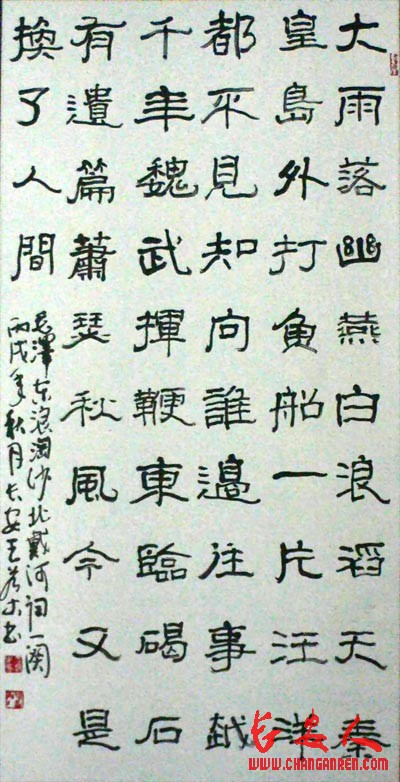 大雨落幽燕白浪滔天秦
皇島外打魚船一片汪洋
都不見知向誰邊往事越
千年魏武揮鞭東臨碣石
有遺篇蕭瑟秋風今又是
換了人間
毛澤东浪淘沙北戴河詞一闋
丙戌年秋月长安王书
长安人
WWW.CHANGANREN.COM